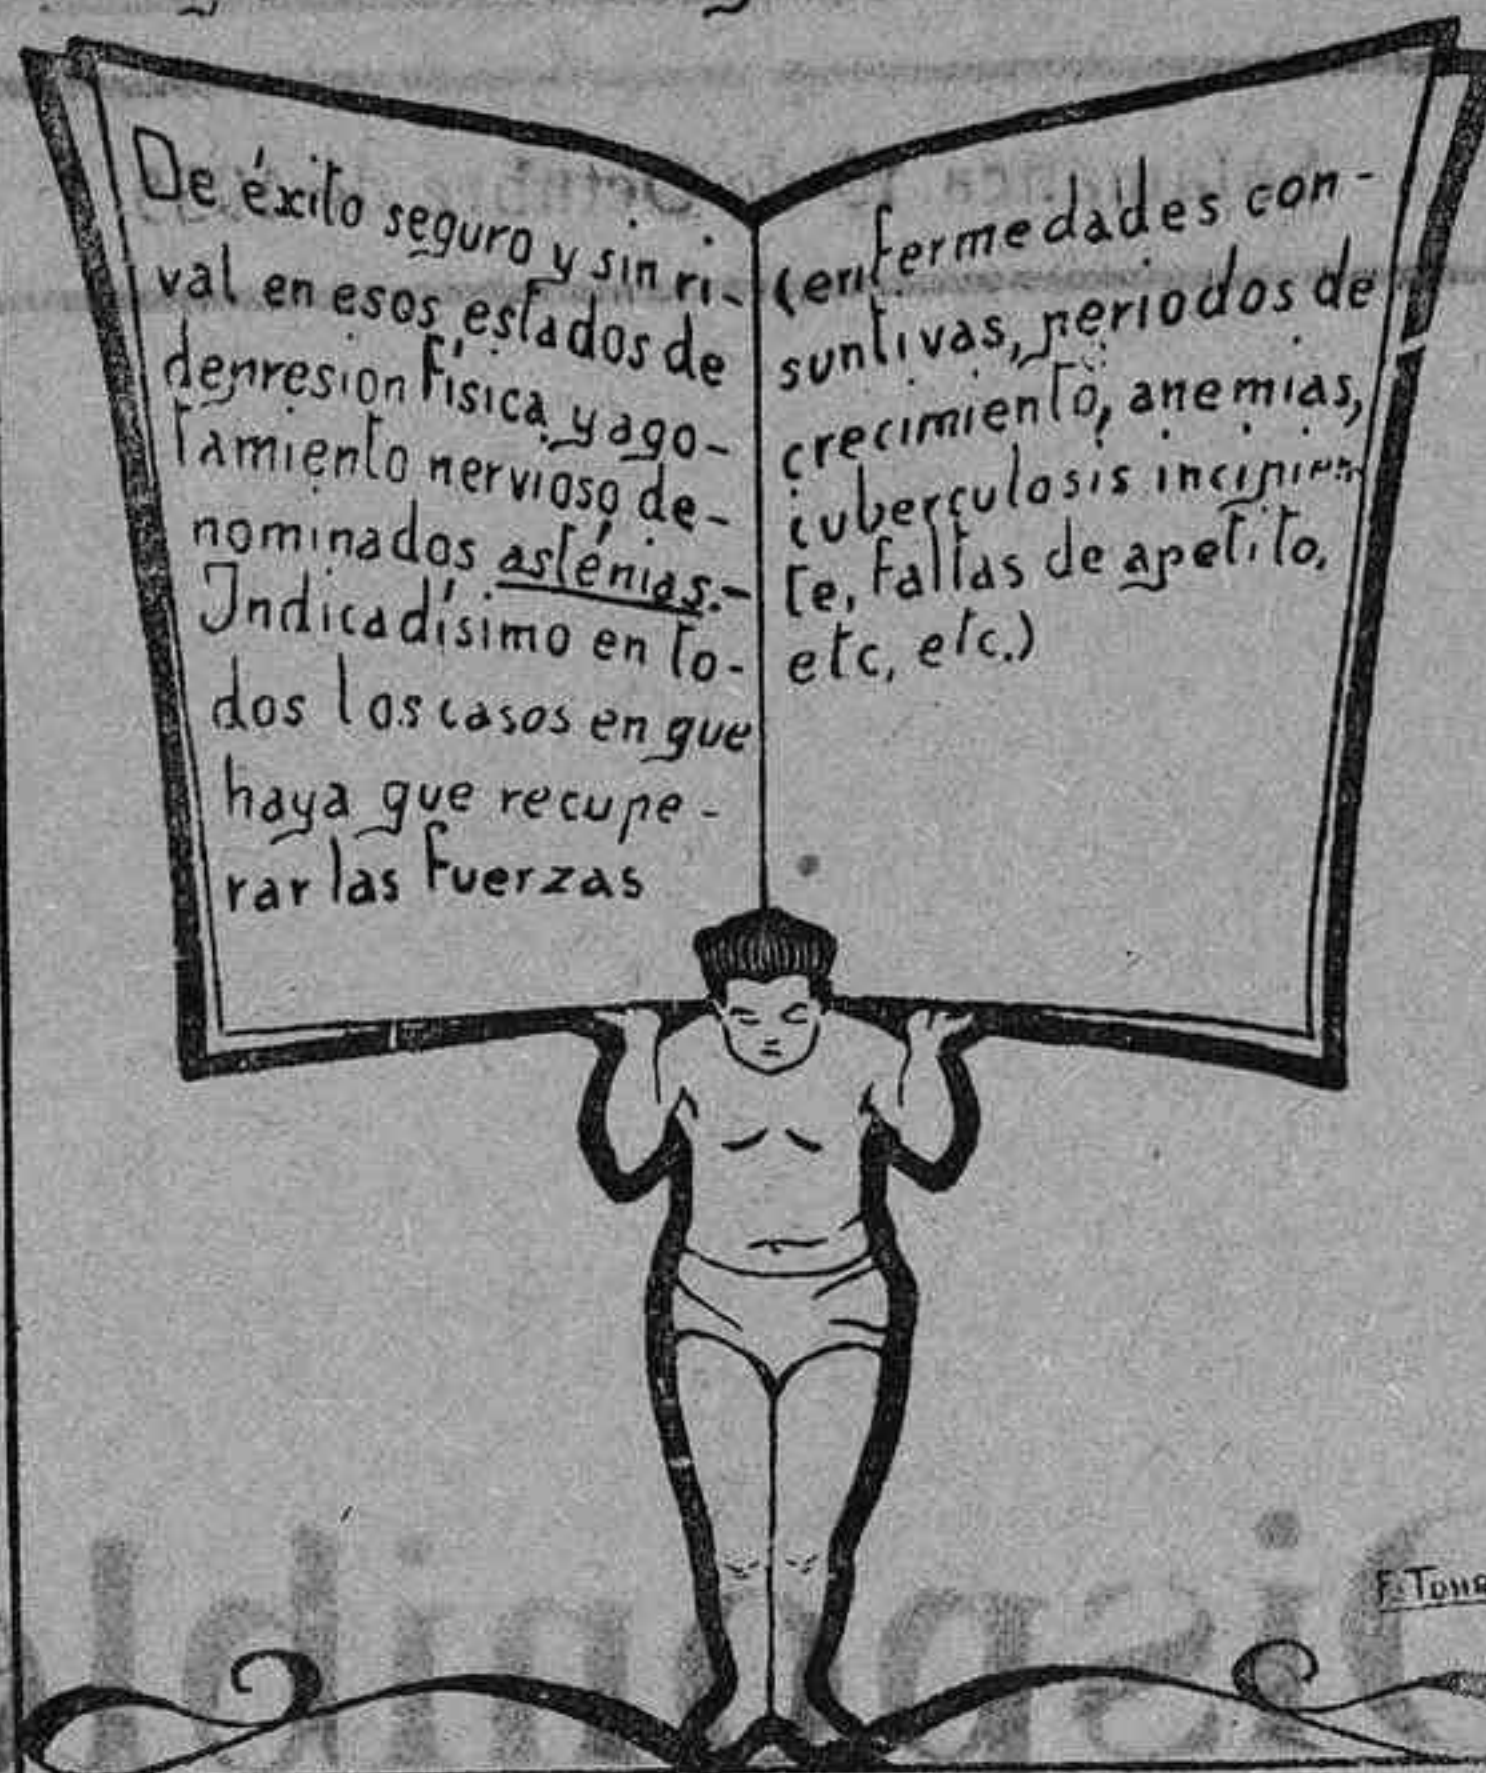 De éxito seguro y sin ri-
val en esos estados de
depresión física y ago-
tamiento nervioso de-
nominados asténias.-
Indicadísimo en to-
dos los casos en que
haya que recupe-
rar las fuerzas
(enfermedades con-
suntivas, periodos de
crecimiento, anemias,
tuberculosis incipien-
te, faltas de apetito,
etc, etc.)